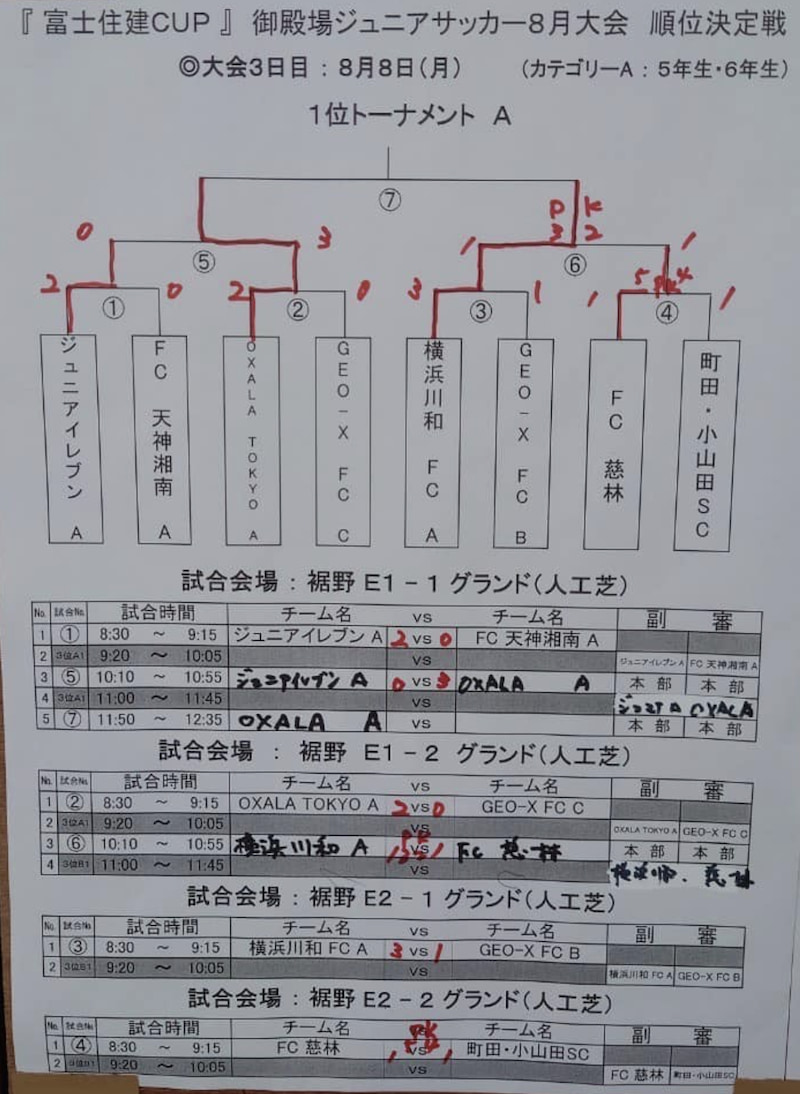 『 富士住建CUP 』 御殿場ジュニアサッカー8月大会 順位決定戦
◎大会3日目 : 8月8日(月) (カテゴリーA : 5年生・6年生)
1位トーナメント A
⑦
P K
0 3 1 3 2 1
⑤ ⑥
2 0 2 0 3 1 1 5 PK 4 1
① ② ③ ④
ジュニアイレブン A
FC 天神湘南 A
OXALA TOKYO A
GEO-X FC C
横浜川和 FC A
GEO-X FC B
FC 慈林
町田・小山田SC
試合会場 : 裾野 E1-1 グランド(人工芝)
No. 試合No. 試合時間 チーム名 vs チーム名 副 審
1 ① 8:30 ～ 9:15 ジュニアイレブン A 2 vs 0 FC 天神湘南 A
2 3位A1 9:20 ～ 10:05 vs ジュニアイレブン A FC 天神湘南 A
3 ⑤ 10:10 ～ 10:55 ジュニアイレブン A 0 vs 3 OXALA A 本 部 本 部
4 3位A1 11:00 ～ 11:45 vs A OXALA
5 ⑦ 11:50 ～ 12:35 OXALA A vs 本 部 本 部
試合会場 : 裾野 E1-2 グランド(人工芝)
No. 試合No. 試合時間 チーム名 vs チーム名 副 審
1 ② 8:30 ～ 9:15 OXALA TOKYO A 2 vs 0 GEO-X FC C
2 3位A1 9:20 ～ 10:05 vs OXALA TOKYO A GEO-X FC C
3 ⑥ 10:10 ～ 10:55 横浜川和 A FC 慈林 本 部 本 部
4 3位B1 11:00 ～ 11:45 vs
試合会場 : 裾野 E2-1 グランド(人工芝)
No. 試合No. 試合時間 チーム名 vs チーム名 副 審
1 ③ 8:30 ～ 9:15 横浜川和 FC A 3 vs 1 GEO-X FC B
2 3位B1 9:20 ～ 10:05 vs 横浜川和 FC A GEO-X FC B
試合会場 : 裾野 E2-2 グランド(人工芝)
No. 試合No. 試合時間 チーム名 チーム名 副 審
1 ④ 8:30 ～ 9:15 FC 慈林 1 vs 1 町田・小山田SC
2 3位B1 9:20 ～ 10:05 vs FC 慈林 町田・小山田SC